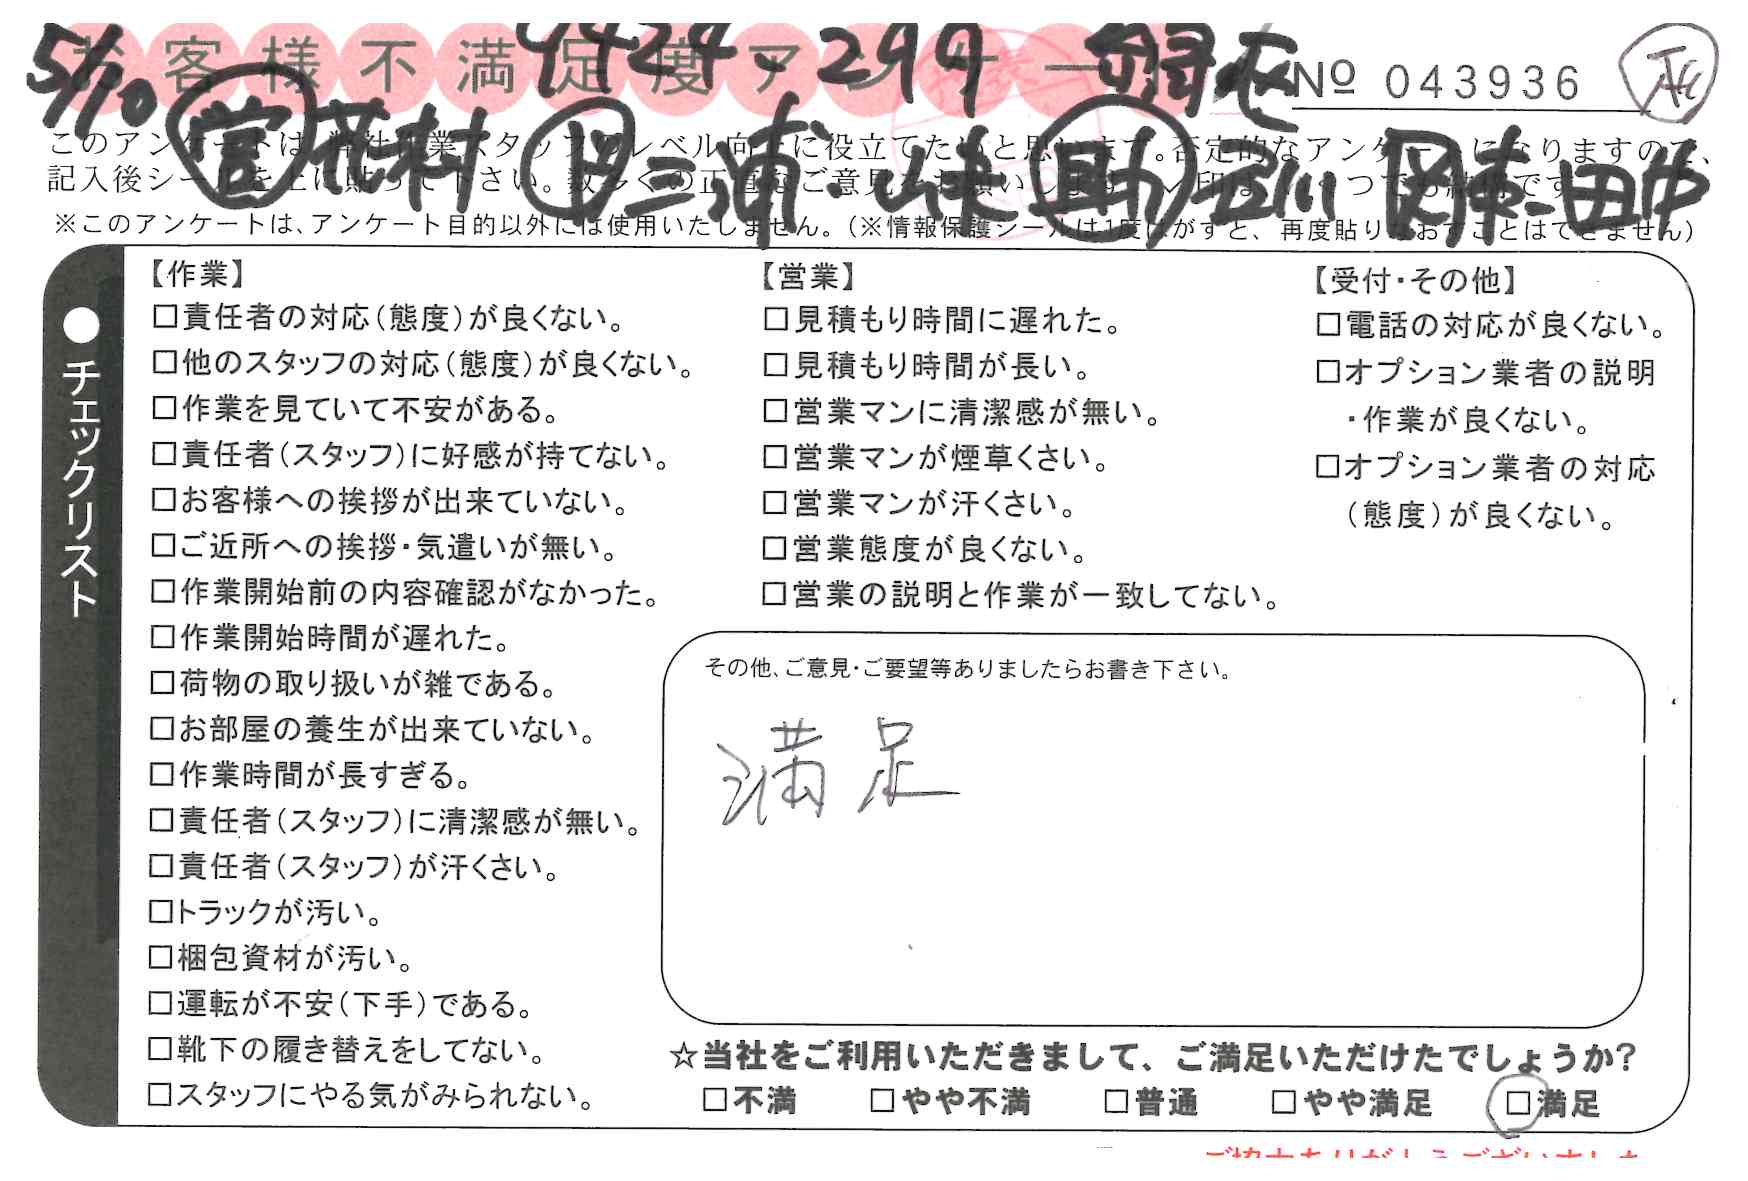 お客様不満足度アンケート
5/10
Nº 043936
営 花村 ド 三浦 助 田中
このアンケートは、弊社作業スタッフのレベル向上に役立てたいと思います。否定的なアンケートになりますので、
記入後シールを上に貼って下さい。数多くの正直なご意見をお願いします。レ印はいくつでも結構です。
※このアンケートは、アンケート目的以外には使用いたしません。(※情報保護シールは1度はがすと、再度貼りなおすことはできません)
●チェックリスト
【作業】
□責任者の対応(態度)が良くない。
□他のスタッフの対応(態度)が良くない。
□作業を見ていて不安がある。
□責任者(スタッフ)に好感が持てない。
□お客様への挨拶が出来ていない。
□ご近所への挨拶・気遣いが無い。
□作業開始前の内容確認がなかった。
□作業開始時間が遅れた。
□荷物の取り扱いが雑である。
□お部屋の養生が出来ていない。
□作業時間が長すぎる。
□責任者(スタッフ)に清潔感が無い。
□責任者(スタッフ)が汗くさい。
□トラックが汚い。
□梱包資材が汚い。
□運転が不安(下手)である。
□靴下の履き替えをしてない。
□スタッフにやる気がみられない。
【営業】
□見積もり時間に遅れた。
□見積もり時間が長い。
□営業マンに清潔感が無い。
□営業マンが煙草くさい。
□営業マンが汗くさい。
□営業態度が良くない。
□営業の説明と作業が一致してない。
【受付・その他】
□電話の対応が良くない。
□オプション業者の説明
・作業が良くない。
□オプション業者の対応
(態度)が良くない。
その他、ご意見・ご要望等ありましたらお書き下さい。
満足
☆当社をご利用いただきまして、ご満足いただけたでしょうか?
□不満 □やや不満 □普通 □やや満足 □満足
ご協力ありがとうございました